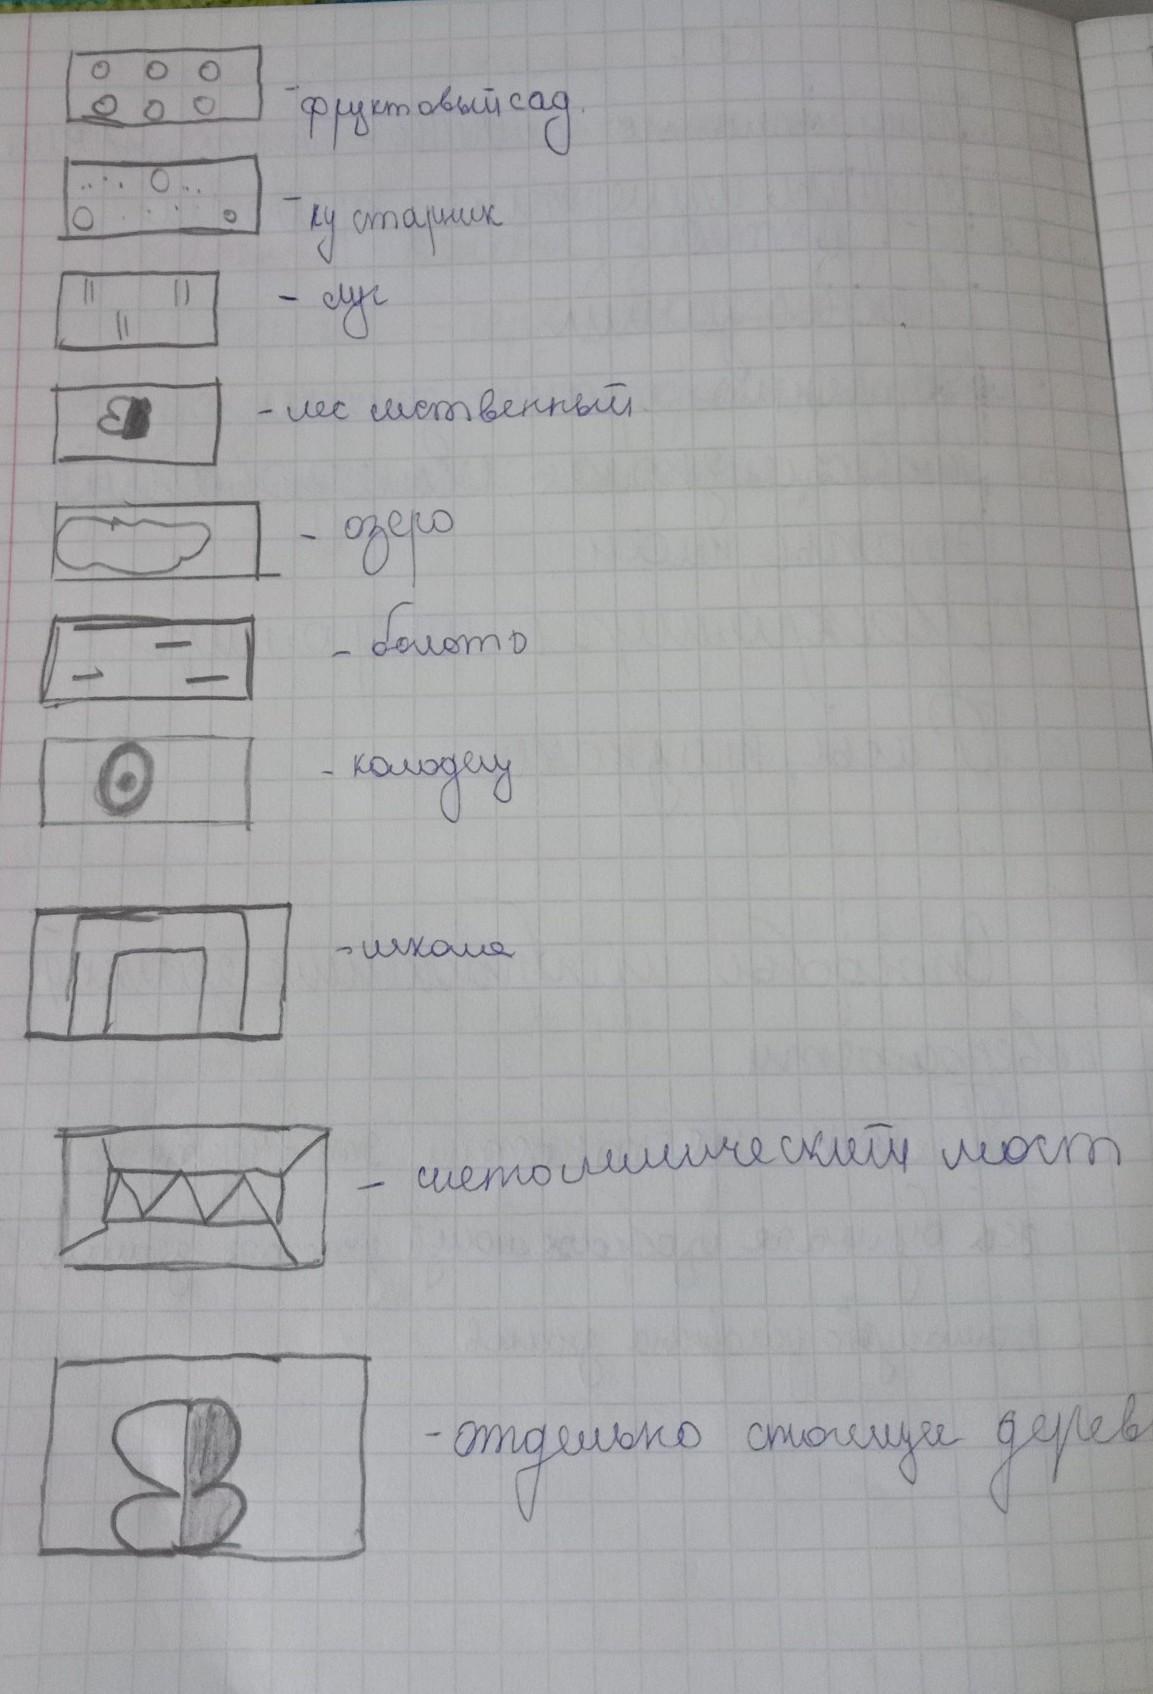 - фруктовый сад.
- кустарник
- луг
- лес лиственный
- озеро
- болото
- колодец
- школа
- металлический мост
- отдельно стоящие дерев